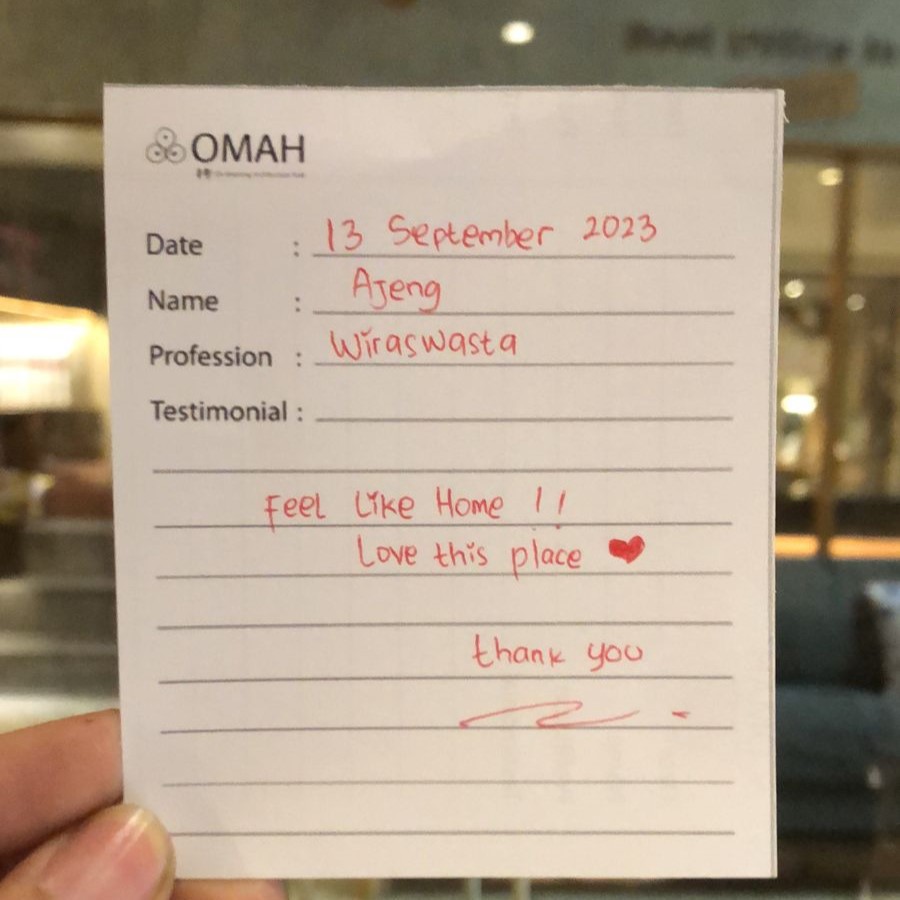 OMAH
Date : 13 September 2023
Name : Ajeng
Profession : Wiraswasta
Testimonial :
Feel Like Home !!
Love this place ❤
thank you